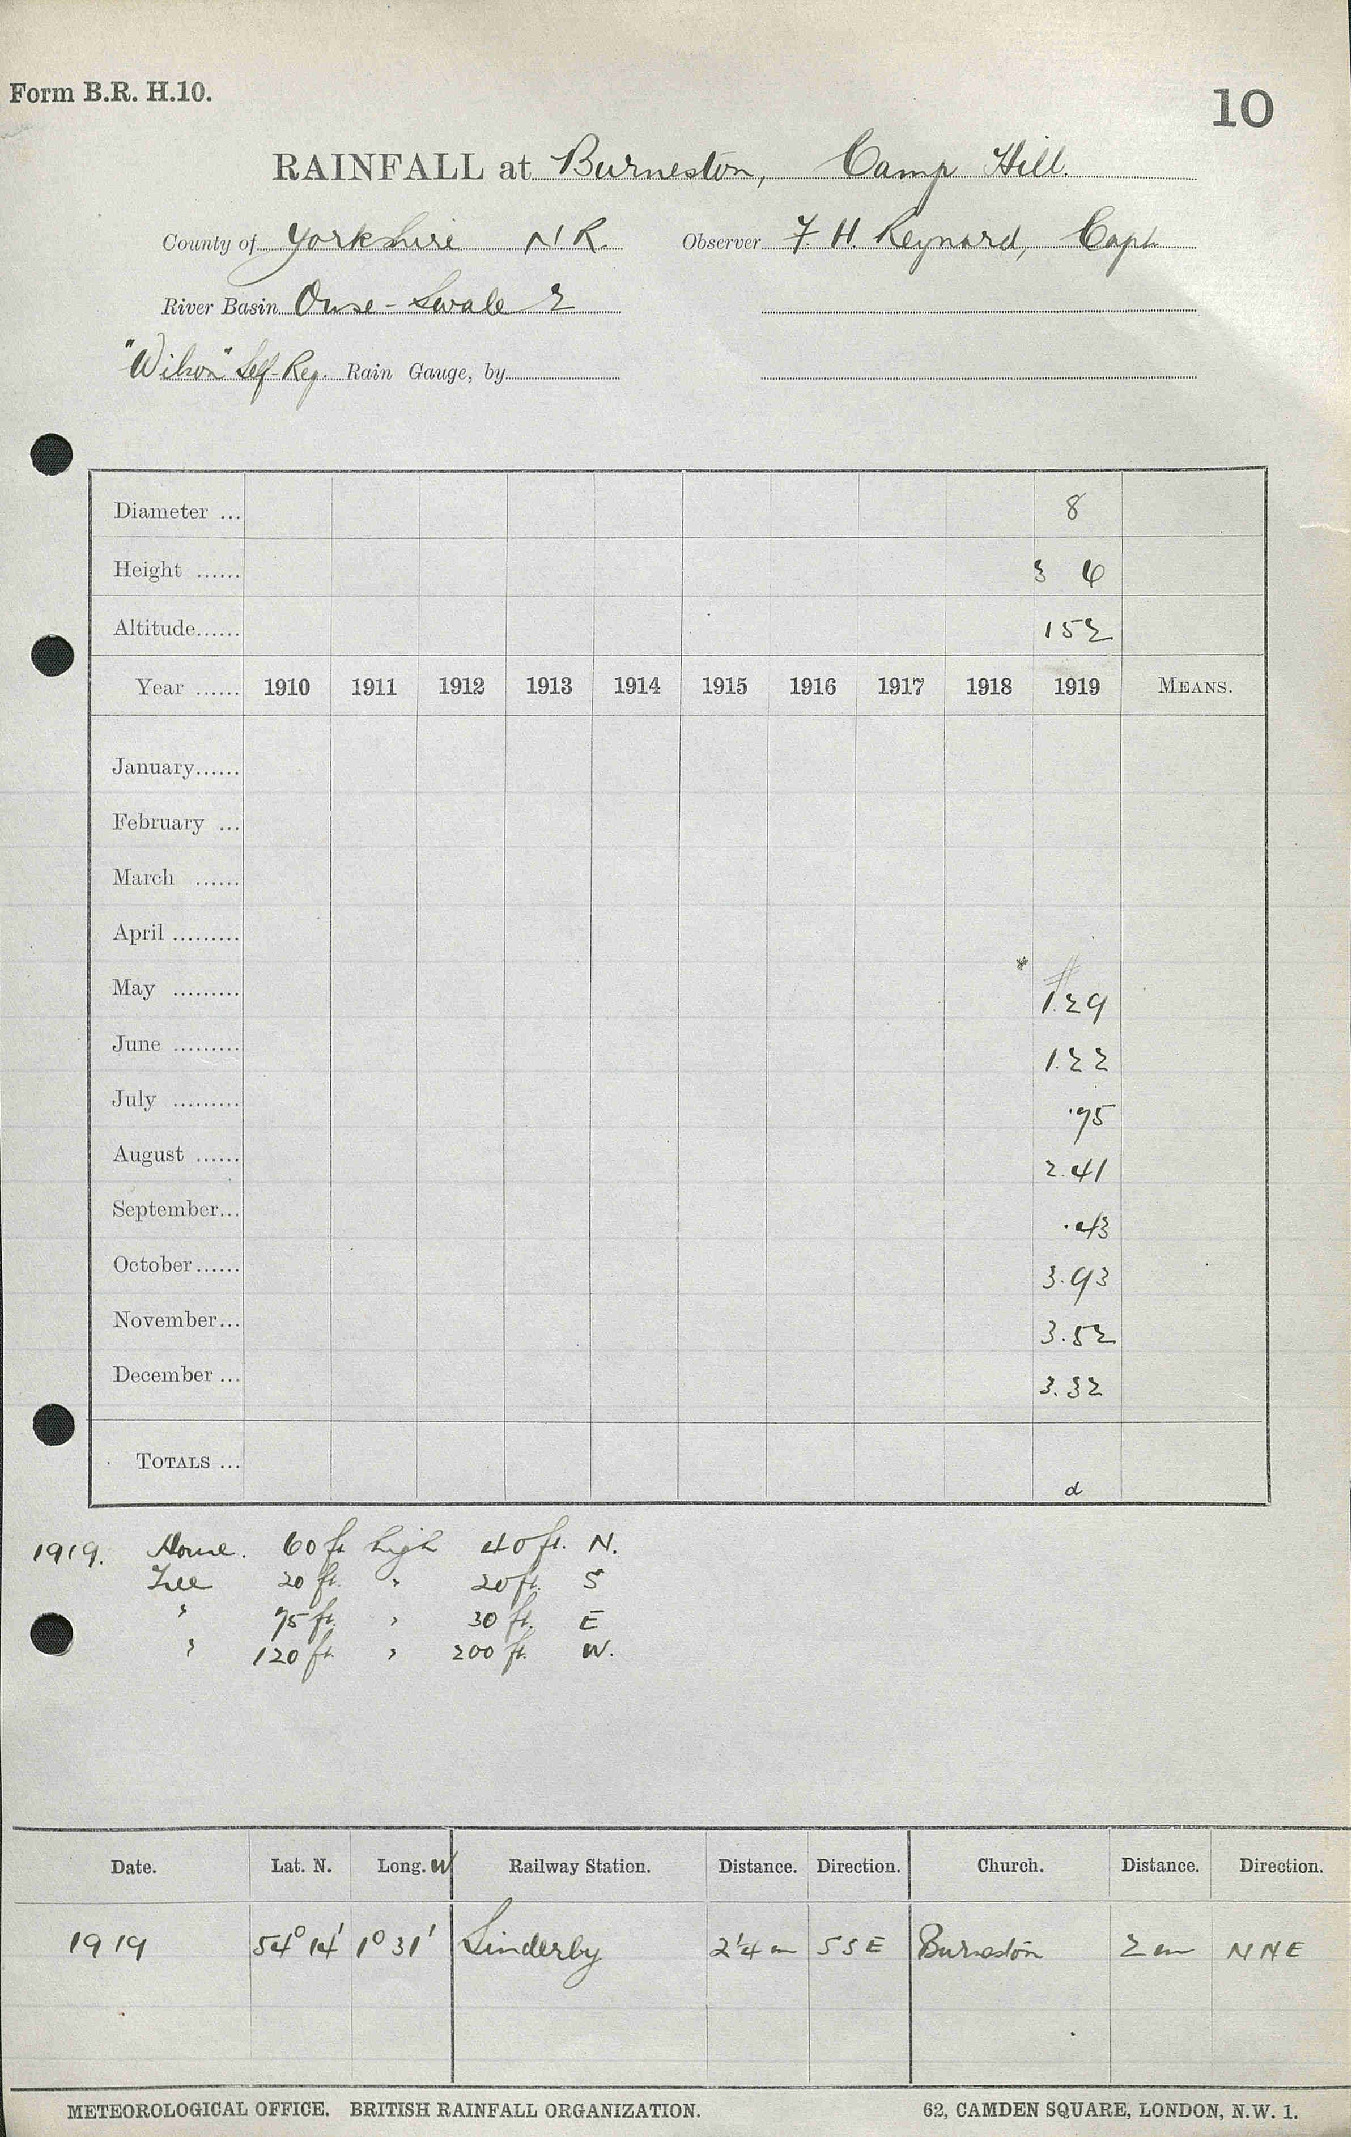 Form B.R. H.10.
10
RAINFALL at Burneston, Camp Hill.
County of Yorkshire N R. Observer F. H. Reynard, Capt
River Basin Ouse - Swale 2
"Wilson" Self-Reg. Rain Gauge, by
Diameter ... 8
Height ...... 3 6
Altitude...... 152
Year ...... 1910 1911 1912 1913 1914 1915 1916 1917 1918 1919 MEANS.
January......
February ...
March ......
April .........
May ......... * # 1.29
June ......... 1.22
July ......... .75
August ...... 2.41
September... .43
October...... 3.93
November... 3.52
December ... 3.32
TOTALS ... d
1919. House. 60 ft high 40 ft. N.
Tree 20 ft. " 20 ft. S
" 75 ft. " 30 ft. E
" 120 ft. " 200 ft. W.
Date. Lat. N. Long. W Railway Station. Distance. Direction. Church. Distance. Direction.
1919 54° 14' 1° 31' Sinderby 2¼ m SSE Burneston 2 m NNE
METEOROLOGICAL OFFICE. BRITISH RAINFALL ORGANIZATION. 62, CAMDEN SQUARE, LONDON, N.W. 1.